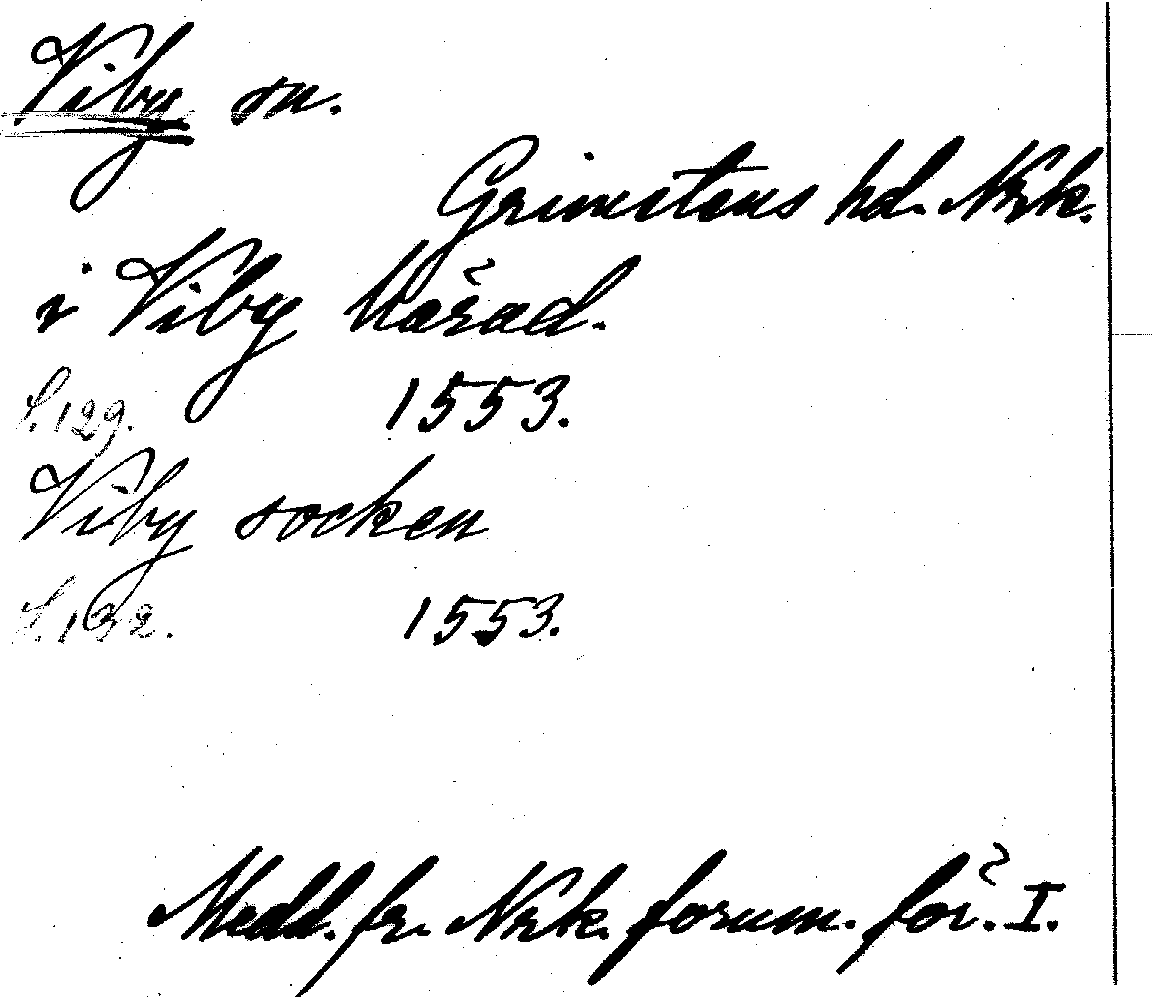 Viby sn.
Grimstens hd. Nrk.
i Viby härad.
S. 129. 1553.
Viby socken
S. 132. 1553.
Medd. fr. Nrk. fornm. för. I.